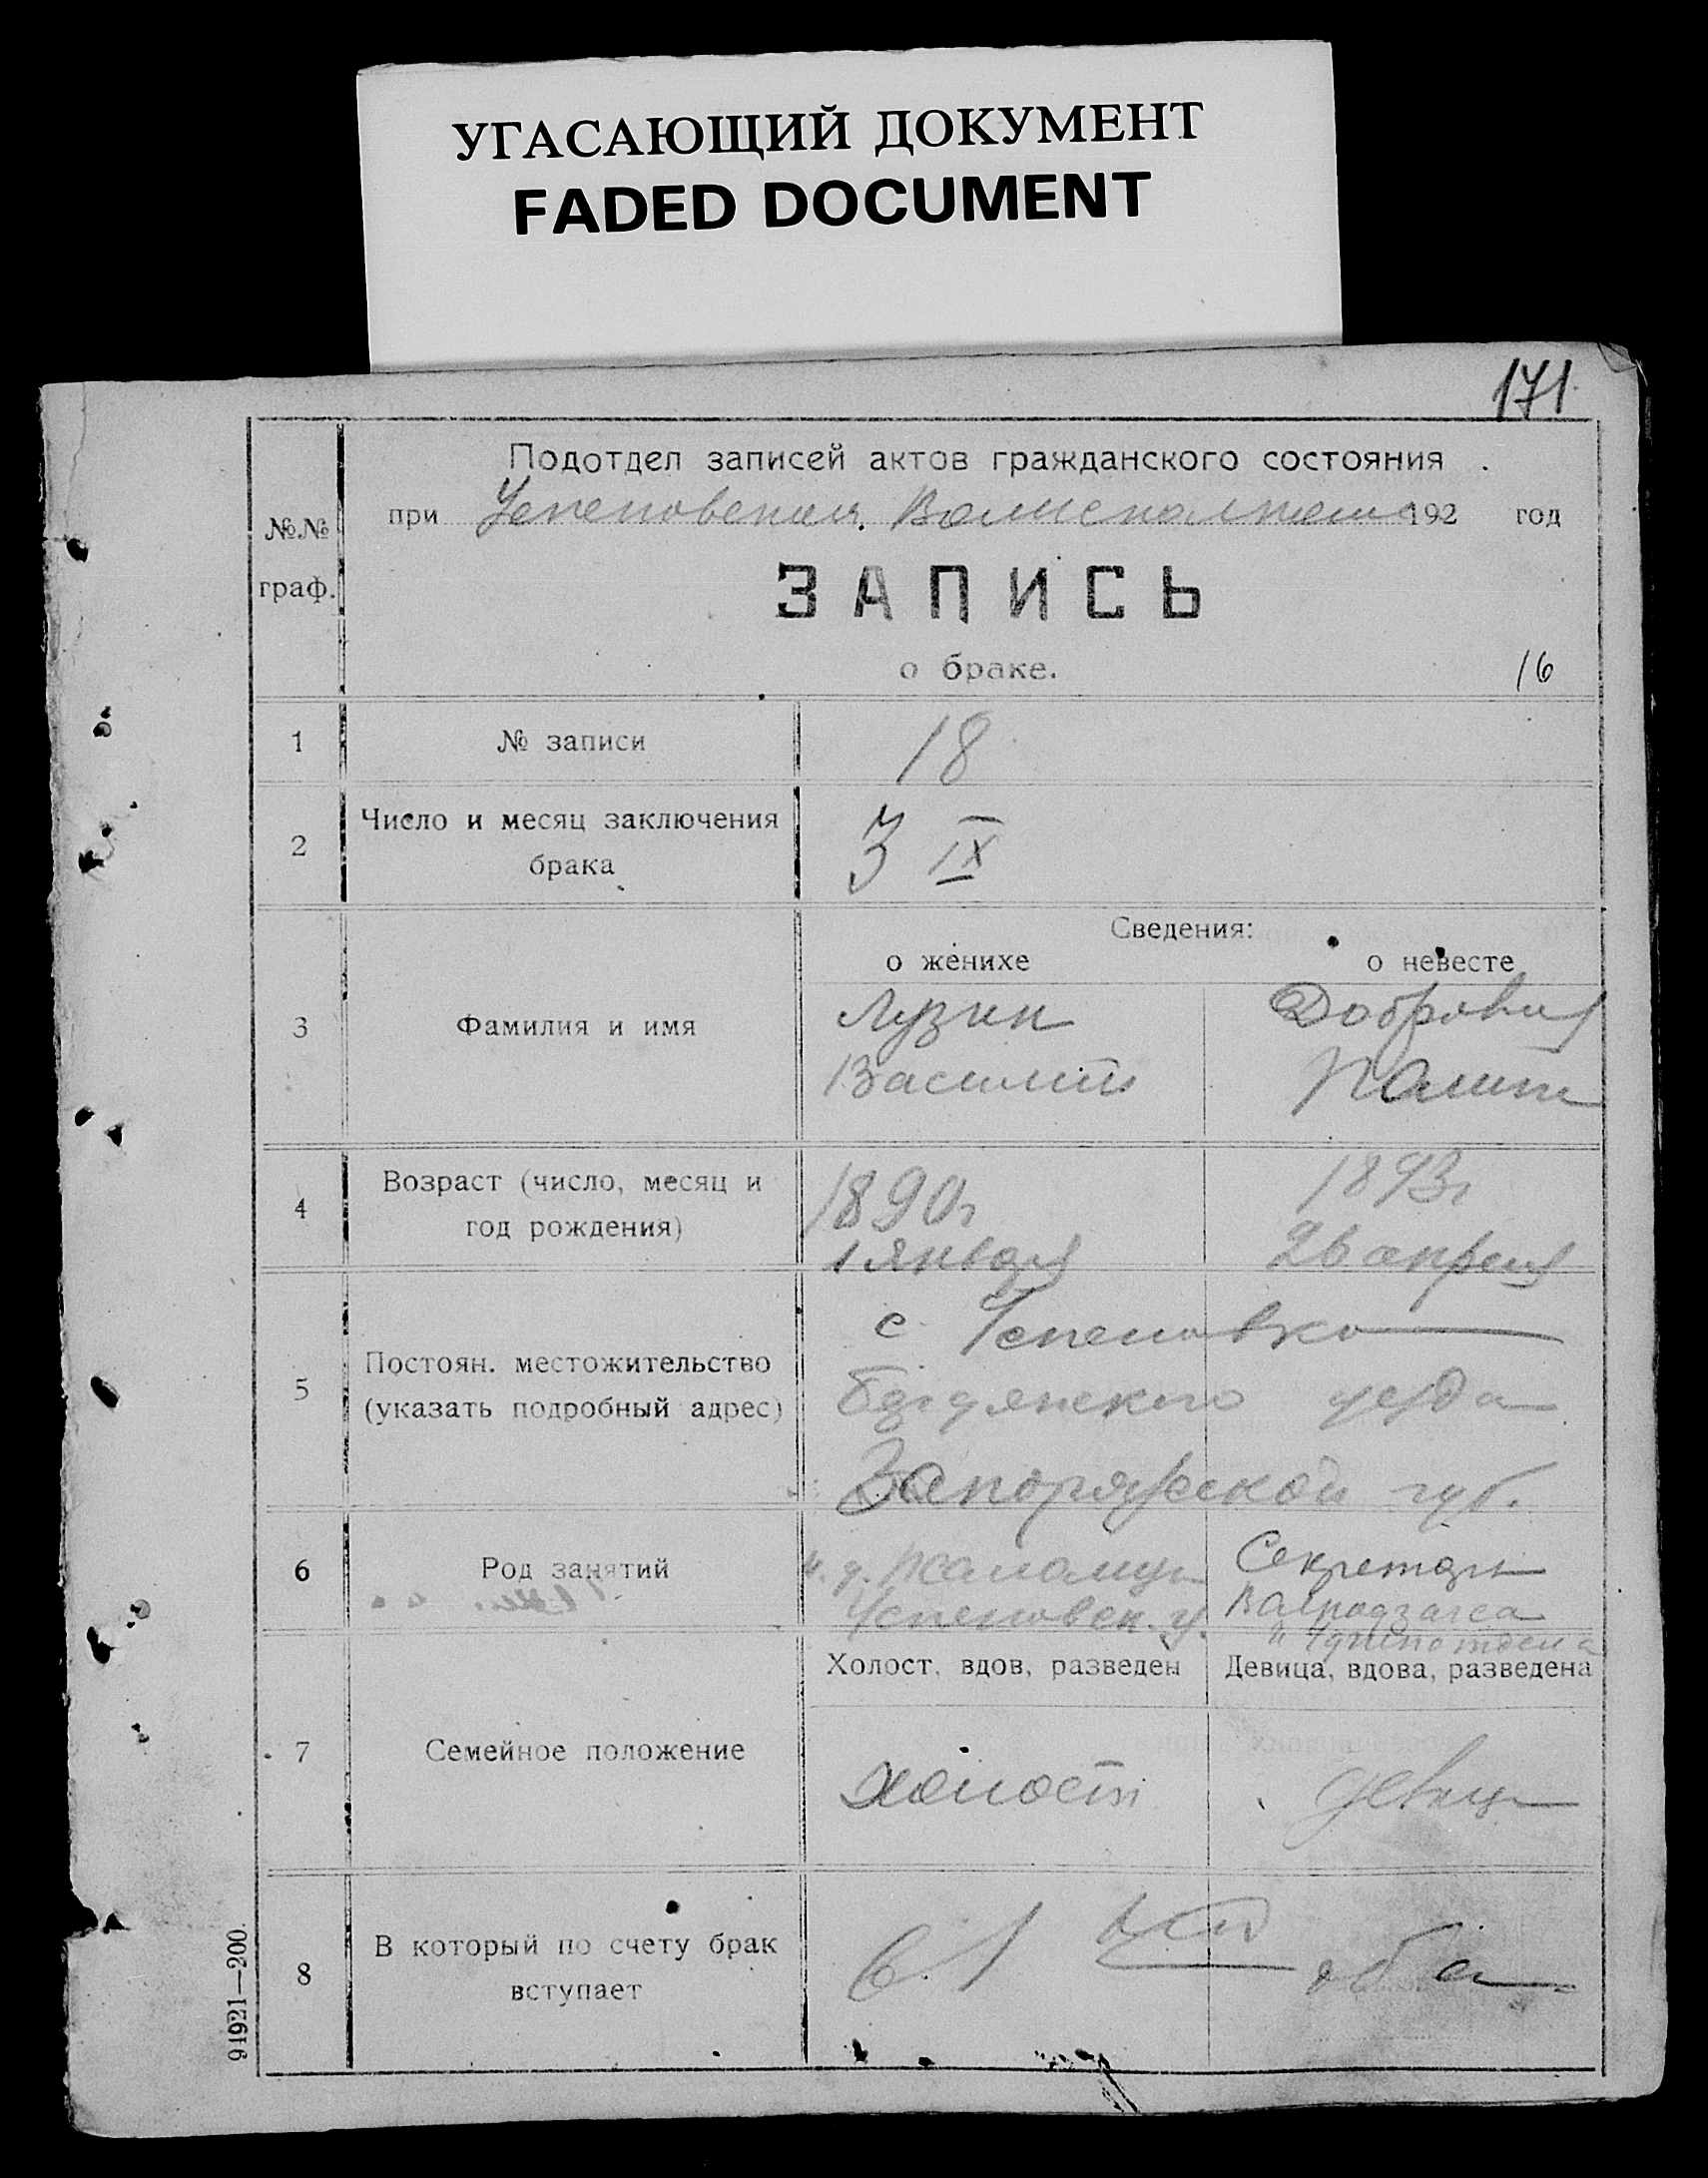 УГАСАЮЩИЙ ДОКУМЕНТ
FADED DOCUMENT
171
Подотдел записей актов гражданского состояния
№№ граф.
при Успеновском 192 год
ЗАПИСЬ
о браке.
16
1 № записи 18
2 Число и месяц заключения брака 3 IX
Сведения:
о женихе о невесте
3 Фамилия и имя
Лузин
Василий
4 Возраст (число, месяц и год рождения)
1890г 1893г
1 января 26 апреля
5 Постоян. местожительство (указать подробный адрес)
с. Успеновка
Бердянского уезда
Запорожской губ.
6 Род занятий
Секретарь
Холост, вдов, разведен Девица, вдова, разведена
7 Семейное положение
холост девица
8 В который по счету брак вступает
в 1 оба
91921—200.